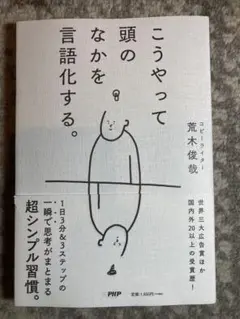 こうやって
頭の
なかを
言語化する。
コピーライター
荒木俊哉
世界三大広告賞ほか
国内外20以上の受賞歴!
1日3分&3ステップの
一瞬で思考がまとまる
超シンプル習慣。
PHP